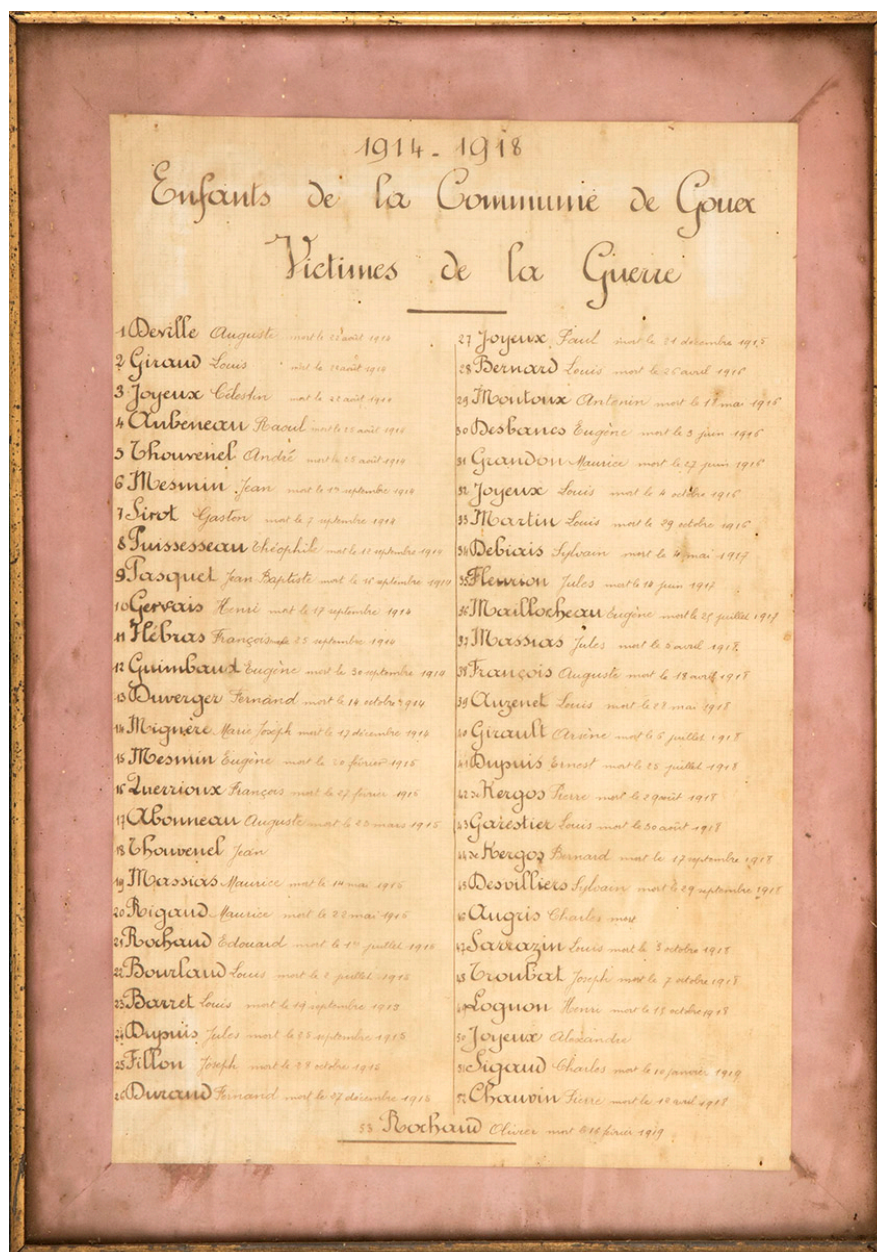 1914-1918
Enfants de la Commune de Gouex
Victimes de la Guerre
1 Deville Auguste mort le 22 août 1914
2 Giraud Louis mort le août 1914
3 Joyeux Célestin mort le 22 août 1914
4 Aubeneau Raoul mort le 25 août 1914
5 Thouvenel André mort le 28 août 1914
6 Mesmin Jean mort le septembre 1914
7 Sirot Gaston mort le 7 septembre 1914
8 Puissesseau Théophile mort le septembre 1914
9 Pasquet Jean Baptiste mort le 16 septembre 1914
10 Gervais Henri mort le 17 septembre 1914
11 Hébras François 25 septembre 1914
12 Guimbaud Eugène mort le 30 septembre 1914
13 Duverger Fernand mort le 14 octobre 1914
14 Mignère Marie Joseph mort le 17 décembre 1914
15 Mesmin Eugène mort le 20 février 1915
16 Querrioux François mort le 27 février 1915
17 Abonneau Auguste mort le 23 mars 1915
18 Thouvenel Jean
19 Massias Maurice mort le 14 mai 1915
20 Rigaud Maurice mort le 22 mai 1915
21 Rochaud Edouard mort le 1er juillet 1915
22 Bourland Louis mort le 2 juillet 1915
23 Barret Louis mort le 19 septembre 1915
24 Dupuis Jules mort le 25 septembre 1915
25 Fillon Joseph mort le 28 octobre 1915
26 Durand Fernand mort le 27 décembre 1915
27 Joyeux Paul mort le 21 décembre 1915
28 Bernard Louis mort le 26 avril 1916
29 Moutoux Antonin mort le 18 mai 1916
30 Desbancs Eugène mort le 3 juin 1916
31 Grandon Maurice mort le 27 juin 1916
32 Joyeux Louis mort le 4 octobre 1916
33 Martin Louis mort le 29 octobre 1916
34 Debiais Sylvain mort le 4 mai 1917
35 Fleurion Jules mort le 14 juin 1917
36 Maillocheau Eugène mort le 25 juillet 1917
37 Massias Jules mort le avril 1918
38 François Auguste mort le 18 avril 1918
39 Auzenet Louis mort le 28 mai 1918
40 Girault Arsène mort le juillet 1918
41 Dupuis Ernest mort le 25 juillet 1918
42 de Kergos Pierre mort le 2 août 1918
43 Garestier Louis mort le 30 août 1918
44 de Kergos Bernard mort le 17 septembre 1918
45 Desvilliers Sylvain mort le 29 septembre 1918
46 Augris Charles mort
47 Sarrazin Louis mort le 3 octobre 1918
48 Troubat Joseph mort le 7 octobre 1918
49 Lognon Henri mort le 15 octobre 1918
50 Joyeux Alexandre
51 Sigaud Charles mort le 10 janvier 1919
52 Chauvin Pierre mort le 12 avril 1918
53 Rochaud Olivier mort le 16 février 1919